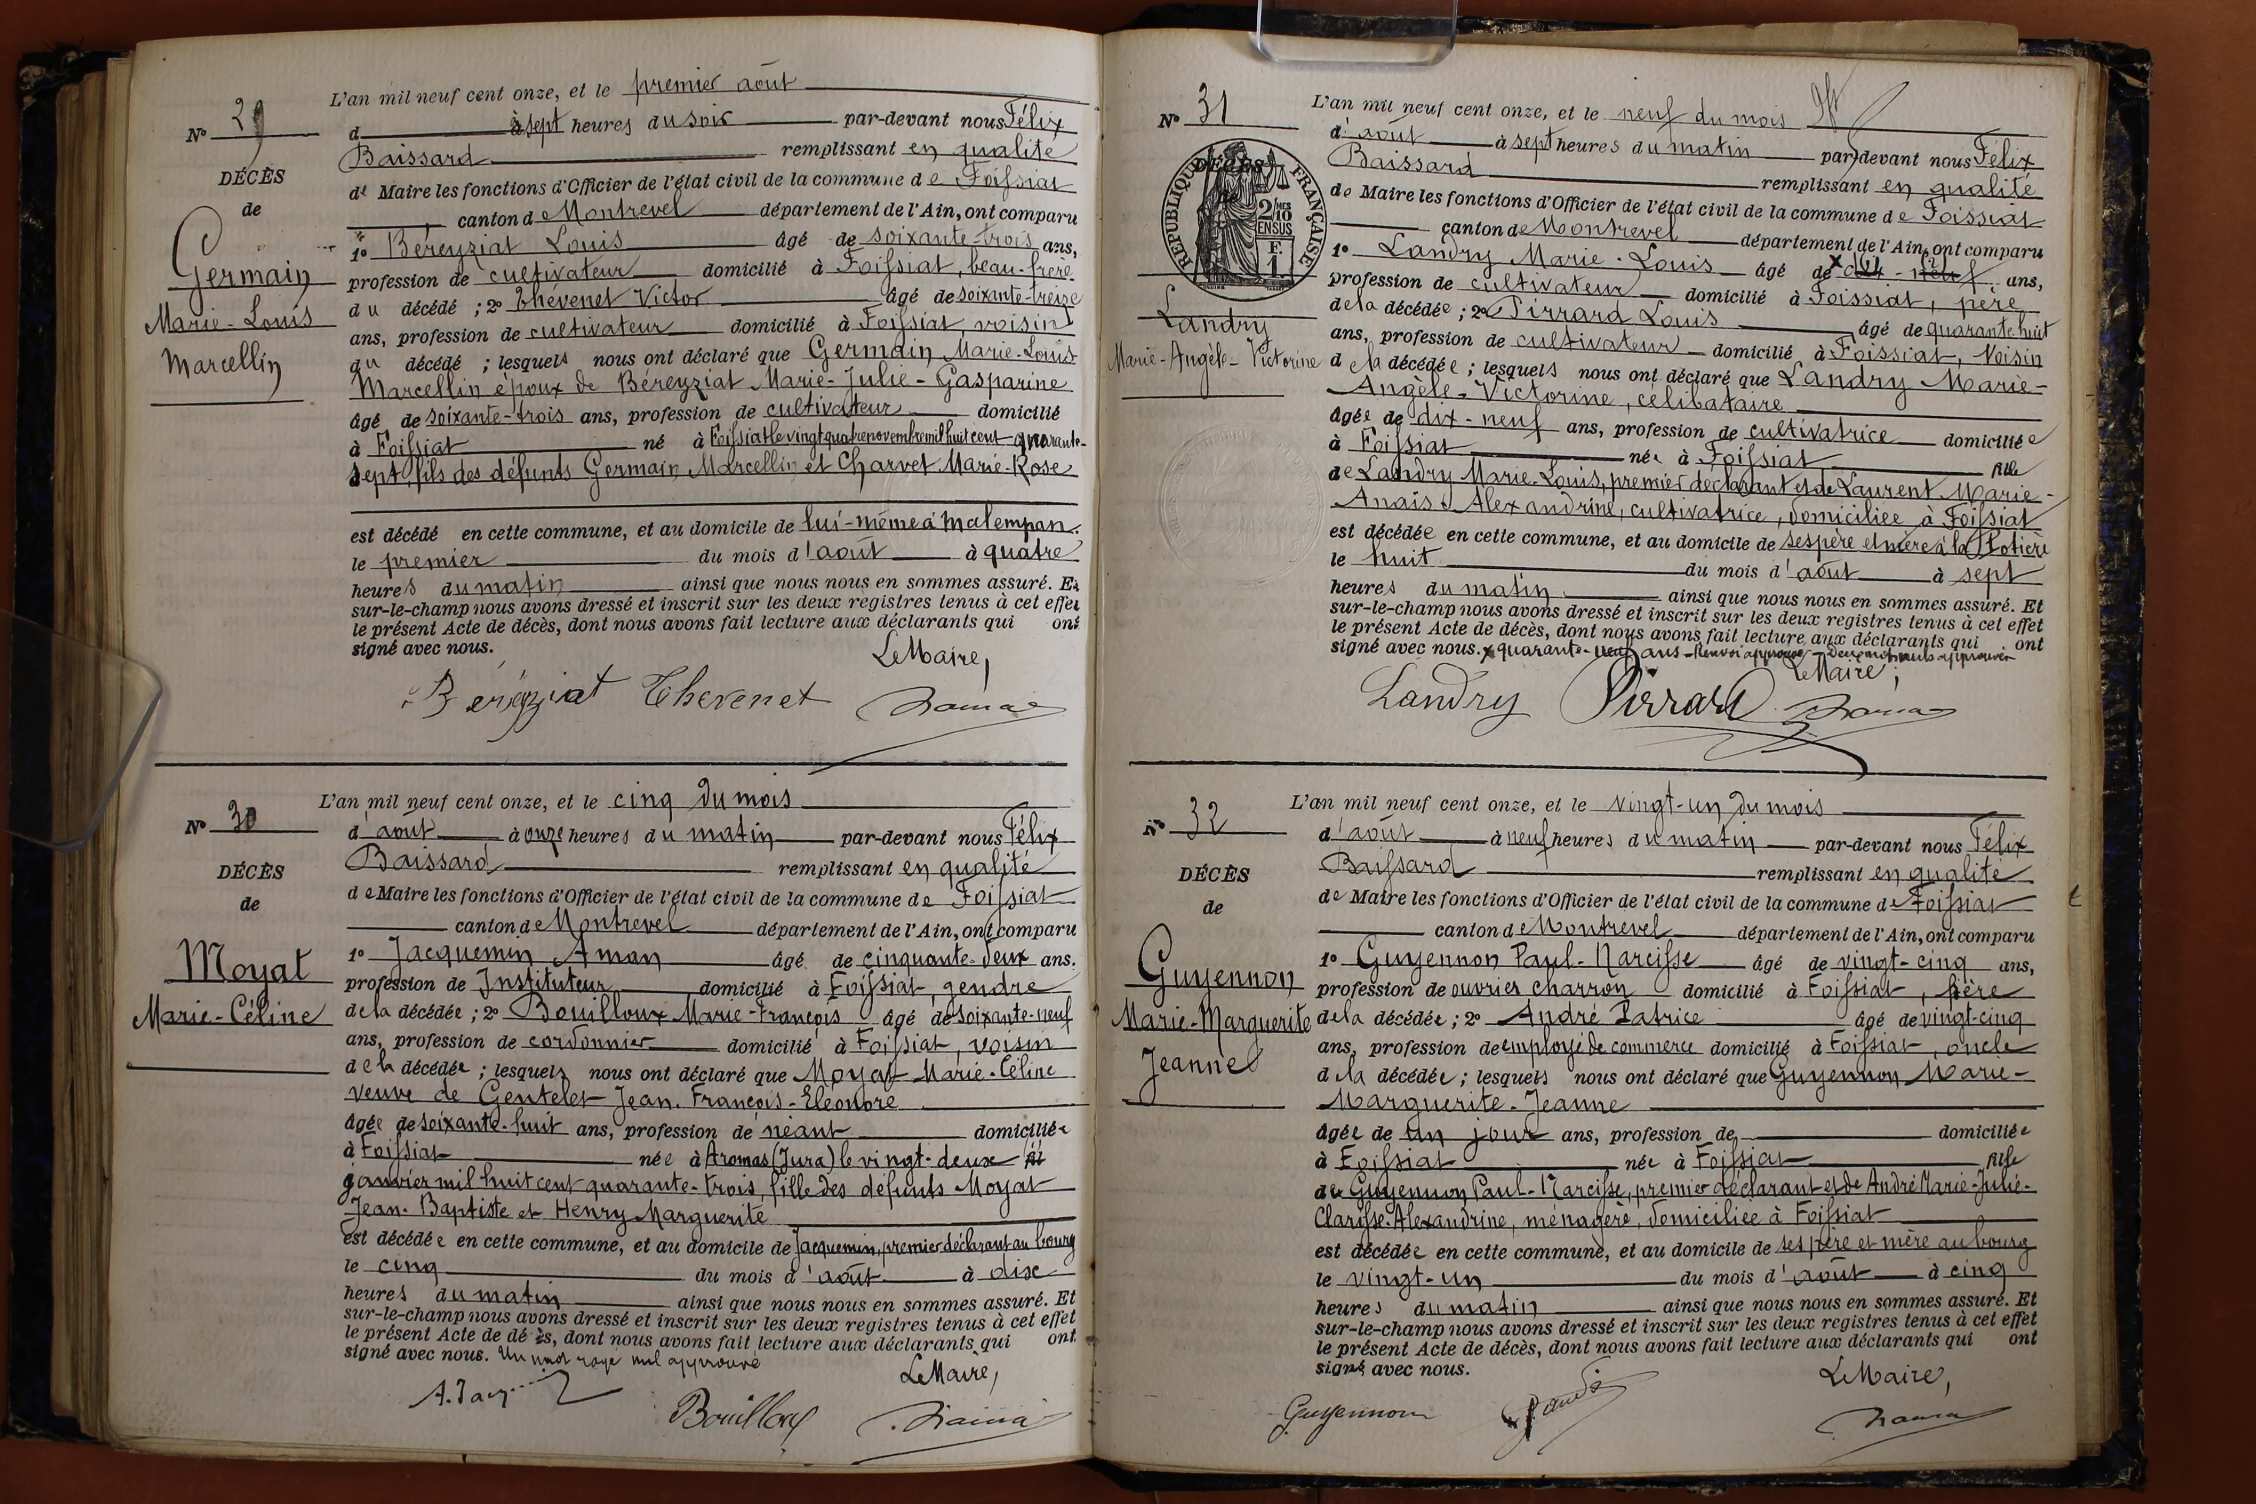 N° 29
DÉCÈS
de
Germain
Marie-Louis
Marcellin
L'an mil neuf cent onze, et le premier août
d à sept heures du soir par-devant nous Félix
Baissard remplissant en qualité
de Maire les fonctions d'Officier de l'état civil de la commune de Foissiat
canton de Montrevel département de l'Ain, ont comparu
1° Béreyziat Louis âgé de soixante-trois ans,
profession de cultivateur domicilié à Foissiat, beau-frère
du décédé ; 2° Thévenet Victor âgé de soixante-treize
ans, profession de cultivateur domicilié à Foissiat, voisin
du décédé ; lesquels nous ont déclaré que Germain Marie-Louis
Marcellin époux de Béreyziat Marie-Julie-Gasparine
âgé de soixante-trois ans, profession de cultivateur domicilié
à Foissiat né à Foissiat le vingt quatre novembre mil huit cent quarante-
sept, fils des défunts Germain Marcellin et Charvet Marie-Rose
est décédé en cette commune, et au domicile de lui-même à Malempan.
le premier du mois d'août à quatre
heures du matin ainsi que nous nous en sommes assuré. Et
sur-le-champ nous avons dressé et inscrit sur les deux registres tenus à cet effet
le présent Acte de décès, dont nous avons fait lecture aux déclarants qui ont
signé avec nous.
Le Maire,
Béréyziat Thevenet
N° 30
DÉCÈS
de
Moyat
Marie-Céline
L'an mil neuf cent onze, et le cinq du mois
d'août à onze heures du matin par-devant nous Félix
Baissard remplissant en qualité
de Maire les fonctions d'Officier de l'état civil de la commune de Foissiat
canton de Montrevel département de l'Ain, ont comparu
1° Jacquemin Aman âgé de cinquante-deux ans.
profession de Instituteur domicilié à Foissiat, gendre
de la décédée ; 2° Bouilloux Marie-François âgé de soixante-neuf
ans, profession de cordonnier domicilié à Foissiat, voisin
de la décédée ; lesquels nous ont déclaré que Moyat Marie-Céline
veuve de Gentelet Jean-François-Eléonore
âgée de soixante-huit ans, profession de néant domiciliée
à Foissiat née à Aromas (Jura) le vingt-deux
janvier mil huit cent quarante-trois, fille des défunts Moyat
Jean-Baptiste et Henry Marguerite
est décédée en cette commune, et au domicile de Jacquemin, premier déclarant au bourg
le cinq du mois d'août à dix
heures du matin ainsi que nous nous en sommes assuré. Et
sur-le-champ nous avons dressé et inscrit sur les deux registres tenus à cet effet
le présent Acte de décès, dont nous avons fait lecture aux déclarants qui ont
signé avec nous. Un mot rayé nul approuvé
Le Maire,
Bouilloux
N° 31
DÉCÈS
de
RÉPUBLIQUE FRANÇAISE
2/10 MES
EN SUS
F.
1
Landry
Marie-Angèle-Victorine
L'an mil neuf cent onze, et le neuf du mois
d'août à sept heures du matin par-devant nous Félix
Baissard remplissant en qualité
de Maire les fonctions d'Officier de l'état civil de la commune de Foissiat
canton de Montrevel département de l'Ain, ont comparu
1° Landry Marie-Louis âgé de x dix-neuf ans,
profession de cultivateur domicilié à Foissiat, père
de la décédée ; 2° Pirrard Louis âgé de quarante-huit
ans, profession de cultivateur domicilié à Foissiat, voisin
de la décédée ; lesquels nous ont déclaré que Landry Marie-
Angèle-Victorine, célibataire
âgée de dix-neuf ans, profession de cultivatrice domiciliée
à Foissiat née à Foissiat fille
de Landry Marie-Louis, premier déclarant et de Laurent Marie-
Anaïs-Alexandrine, cultivatrice, domiciliée à Foissiat
est décédée en cette commune, et au domicile de ses père et mère à la Potière
le huit du mois d'août à sept
heures du matin ainsi que nous nous en sommes assuré. Et
sur-le-champ nous avons dressé et inscrit sur les deux registres tenus à cet effet
le présent Acte de décès, dont nous avons fait lecture aux déclarants qui ont
signé avec nous. x quarante-neuf ans - Renvoi approuvé - Deux mots nuls approuvés
Le Maire,
Landry Pirrard
N° 32
DÉCÈS
de
Guyennon
Marie-Marguerite
Jeanne
L'an mil neuf cent onze, et le vingt-un du mois
d'août à neuf heures du matin par-devant nous Félix
Baissard remplissant en qualité
de Maire les fonctions d'Officier de l'état civil de la commune de Foissiat
canton de Montrevel département de l'Ain, ont comparu
1° Guyennon Paul-Narcisse âgé de vingt-cinq ans,
profession de ouvrier charron domicilié à Foissiat, père
de la décédée ; 2° André Patrice âgé de vingt-cinq
ans, profession de employé de commerce domicilié à Foissiat, oncle
de la décédée ; lesquels nous ont déclaré que Guyennon Marie-
Marguerite-Jeanne
âgée de un jour ans, profession de domiciliée
à Foissiat née à Foissiat fille
de Guyennon Paul-Narcisse, premier déclarant et de André Marie-Julie-
Clarisse-Alexandrine, ménagère, domiciliée à Foissiat
est décédée en cette commune, et au domicile de ses père et mère au bourg
le vingt-un du mois d'août à cinq
heures du matin ainsi que nous nous en sommes assuré. Et
sur-le-champ nous avons dressé et inscrit sur les deux registres tenus à cet effet
le présent Acte de décès, dont nous avons fait lecture aux déclarants qui ont
signé avec nous.
Le Maire,
Guyennon